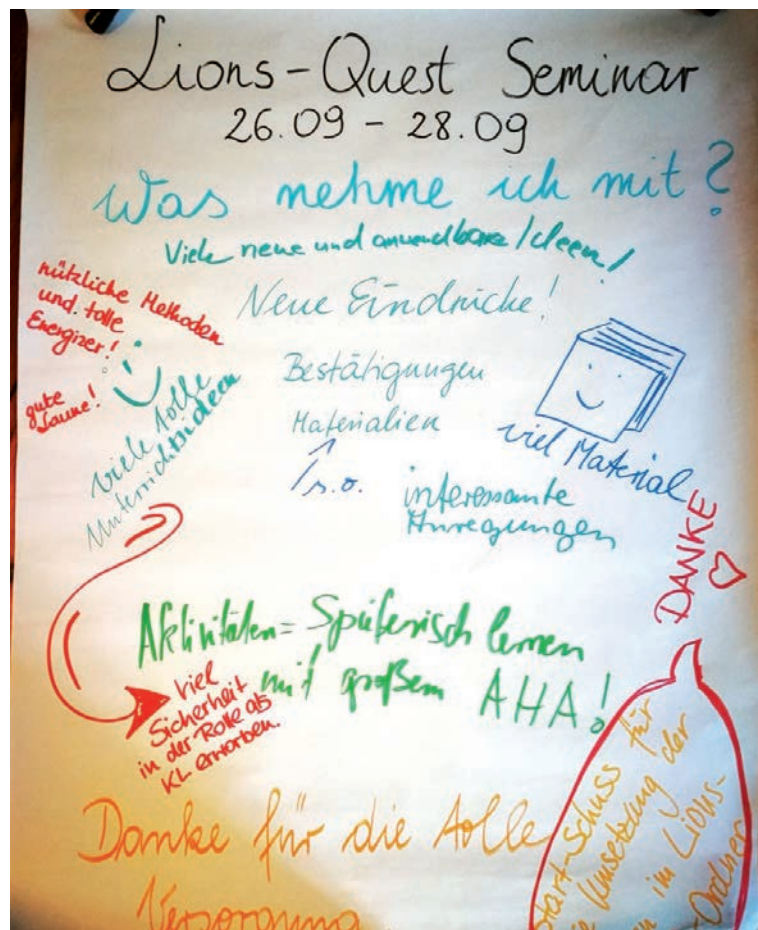 Lions-Quest Seminar
26.09 - 28.09
Was nehme ich mit?
Viele neue und anwendbare Ideen!
nützliche Methoden
und tolle
Energizer!
gute
Laune!
Neue Eindrücke!
viele tolle
Unterrichtsideen
Bestätigungen
Materialien
s.o.
viel Material
interessante
Anregungen
DANKE
Aktivitäten = Spielerisch lernen
mit großem AHA!
viel
Sicherheit
in der Rolle als
KL erworben.
Danke für die tolle
Versorgung
Start-Schuss für
Umsetzung der
im Lions-
Ordner